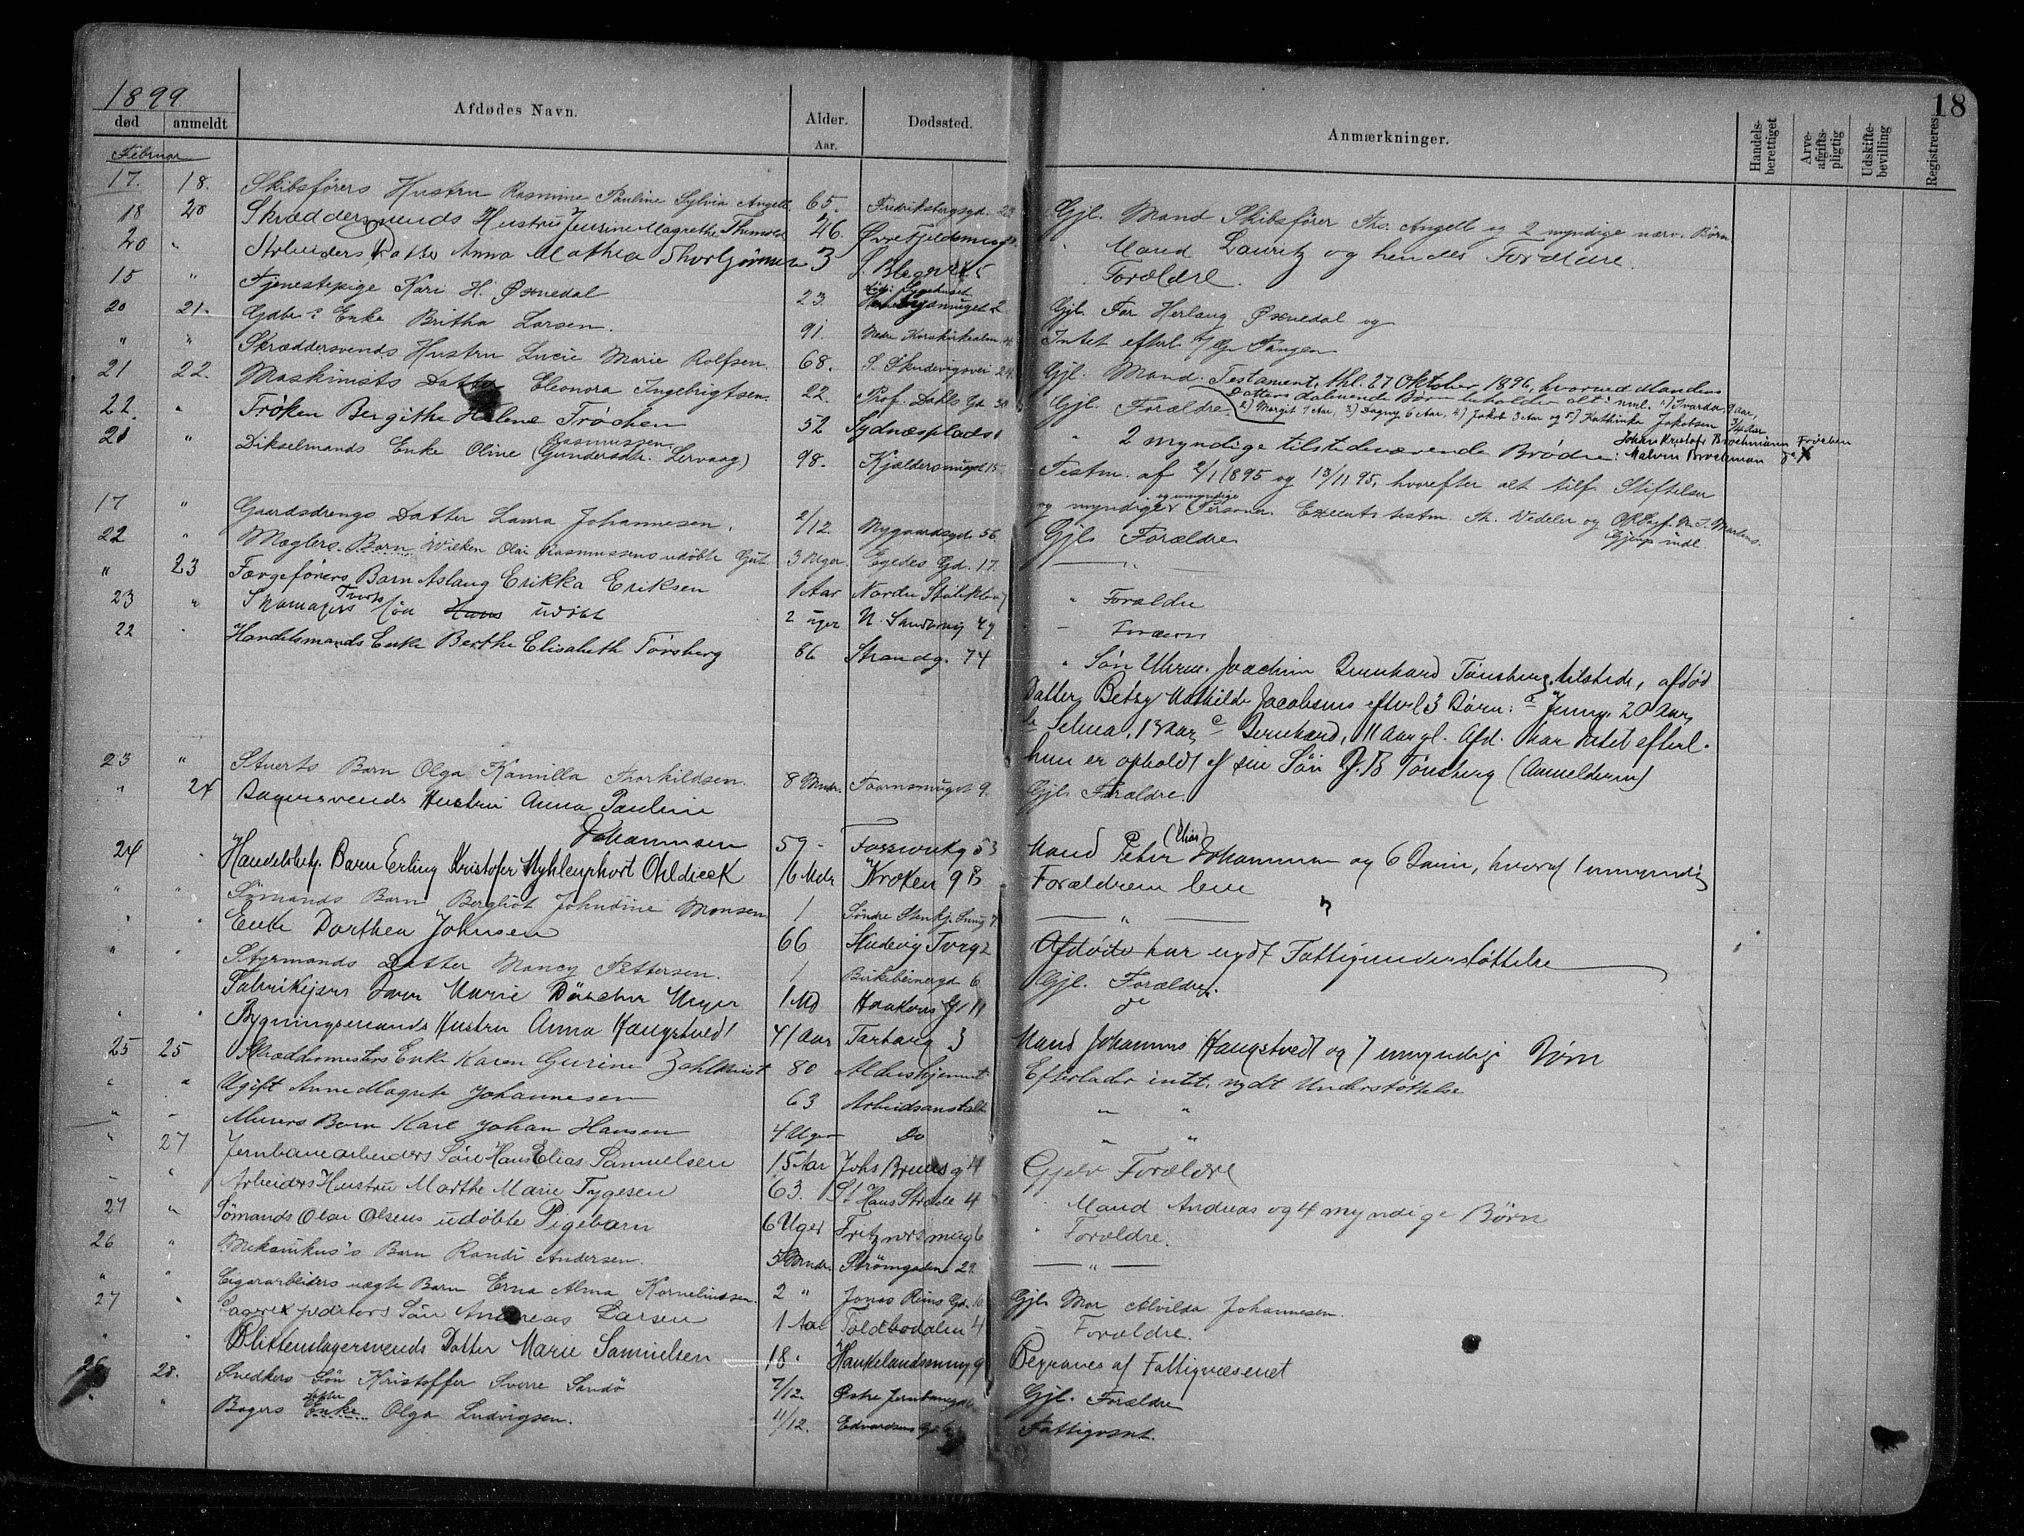 1899
18
død anmeldt Afdødes Navn. Alder. Aar. Dødssted. Anmærkninger. Handels-berettiget Arve-afgifts-pligtig Udskifte-bevilling Registreres
Februar
17. 18. Skibsførers Hustru Rasmine Pauline Sylvia Angell. 65. Fredriksbergsgd. 22 Gjl. Mand Skibsfører Ths. Angell og 2 myndige nærv. Børn
18 20 Skræddersvends Hustru Jensine Magrethe 46. Øvre Fjeldsmug " Mand Lauritz og hendes Forældre.
20 " Arbeiders Datter Anna Mathea Thorbjørnsen 3 L. Forældre.
15 " Tjenestepige Kari H. Øxnedal 23. Sygehuset Gjl. Far Herlaug Øxnedal og
20 21. Enke Britha Larsen. 91. Nedre Korskirkealm. Intet efterl.
" " Skræddersvends Hustru Lucie Marie Rolfsen. 68. S. Skudevigsvei 24. Gjl. Mand. Testament, thl. 27 Oktober 1896, hvorved Mandens
Datters Børn beholder alt: nml. 1) 9 aar,
21 22. Maskinists Datter Eleonora Ingebrigtsen. 22. Prof. Dahls Gd. Gjl. Forældre. 2) Margit 7 Aar, 3) Dagny 6 Aar, 4) Jakob 3 Aar og 5) Kathinka Jakobsen
22. " Frøken Bergithe Helene Frøchen 52 Sydnæsplads 1 " 2 myndige tilstedeværende Brødre: Johan Kristofer Brochmann Frøchen
21 " Dikselmands Enke Oline (Gundersdtr. Rasmussen Lervaag) 98. Kjældersmuget 15 Testm. af 2/1 1895 og 13/11 95, hvorefter alt tilf. Stiftelser
og myndige og umyndige Personer. Th. Wedeler og
17 " Gaardsdrengs Datter Laura Johannesen. 2/12. Nygaardsgd. 56. Gjl. Forældre
22 " Mæglers Barn Wilken Olai Rasmussens udøbte Gut. 3 Uger Egedes Gd. 17. — " —
" 23 Færgeførers Barn Aslaug Erikka Eriksen 1 Aar Nordre " Forældre
23 " Skomagers Søn Hans udøbt 2 uger N. Sandvig 49
22 " Handelsmands Enke Berthe Elisabeth Tønsberg 86 Strandg. 74 " Søn Uhrm. Joachim Bernhard Tønsberg, tilstede, afdød
Datter Betsy Mathilde Jacobsens efterl 3 Børn: a Jenny 20 Aar,
b Selma, 13 Aar, c Bernhard, 11 Aar gl. Afd. har intet efterl.
hun er opholdt af sin Søn J. B Tønsberg (Anmelderen)
23 " Stuerts Barn Olga Kamilla Thorkildsen. 8 Mndr. Taarnsmuget 9. Gjl. Forældre
" 24 Bagersvends Hustru Anna Pauline
Johannesen 59 - 53 Mand Peter (Elias) Johannesen og 6 Børn, hvoraf 1 umyndig
24 " Handelsbetj. Barn Erling Kristofer Myhlenphort Ohldieck 16 Mdr Kroken 9 B Forældrene leve
" " Sømands Barn Bergliot Johndine Monsen 1 Søndre Stenkj. Smug 7. — " —
" " Enke Dorthea Johnsen 66 Skudevig Torg 2 Afdøde har nydt Fattigunderstøttelse
" " Styrmands Datter Nancy Pettersen. 1 Birkebeinergd 6 Gjl. Forældre.
" " Fabrikejers Barn Marie Meyer 1 Md Haakons Gd 11 do
" " Bygningsmands Hustru Anna Haugstvedt 41 Aar Tartarg 3 Mand Johannes Haugstvedt og 7 umyndige Børn
25 25 Skræddermesters Enke Karen Gurine Zahlkvist 80 Aldershjemmet Efterlader intet. nydt Understøttelse
" " Ugift Anne Magrete Johannesen 63 Arbeidsanstalt " "
" " Murers Barn Karl Johan Hansen 4 Uger Do " "
" 27 Jernbanearbeiders Søn Hans Elias Samuelsen 15 Aar Johs Bruns g 4 Gjelv Forældre
" Arbeiders Hustru Marthe Marie Tygesen 63. St Hans Stræde 4 " Mand Andreas og 4 myndige Børn
27 " Sømands Olai Olsens udøbte Pigebarn 6 Uger Fritznersmug 6 " Forældre.
26 " Mekanikus's Barn Randi Andersen. 5 Mndr. Strømgaden 29 — " —
" " Cigararbeiders uægte Barn Erna Alma Kornelinssen. 2 " Jonas Reins Gd. Gjl. Mor Alvilda Johannesen.
27 " Lagerexpeditørs Søn Andreas Larsen 1 Aar Toldbodalm 4 — Forældre.
" " Blikkenslagersvends Datter Marie Samuelsen 18 " Haukelandsmug 9 Begraves af Fattigvæsenet
26 28. Snedkers Søn Kristoffer Sverre Sandø 7/12. Østre Jernbanegd Gjl. Forældre
" " Bagers Datter Enke Olga Ludvigsen. 4/12. Edvardsens Gd. Fattigvsnt.